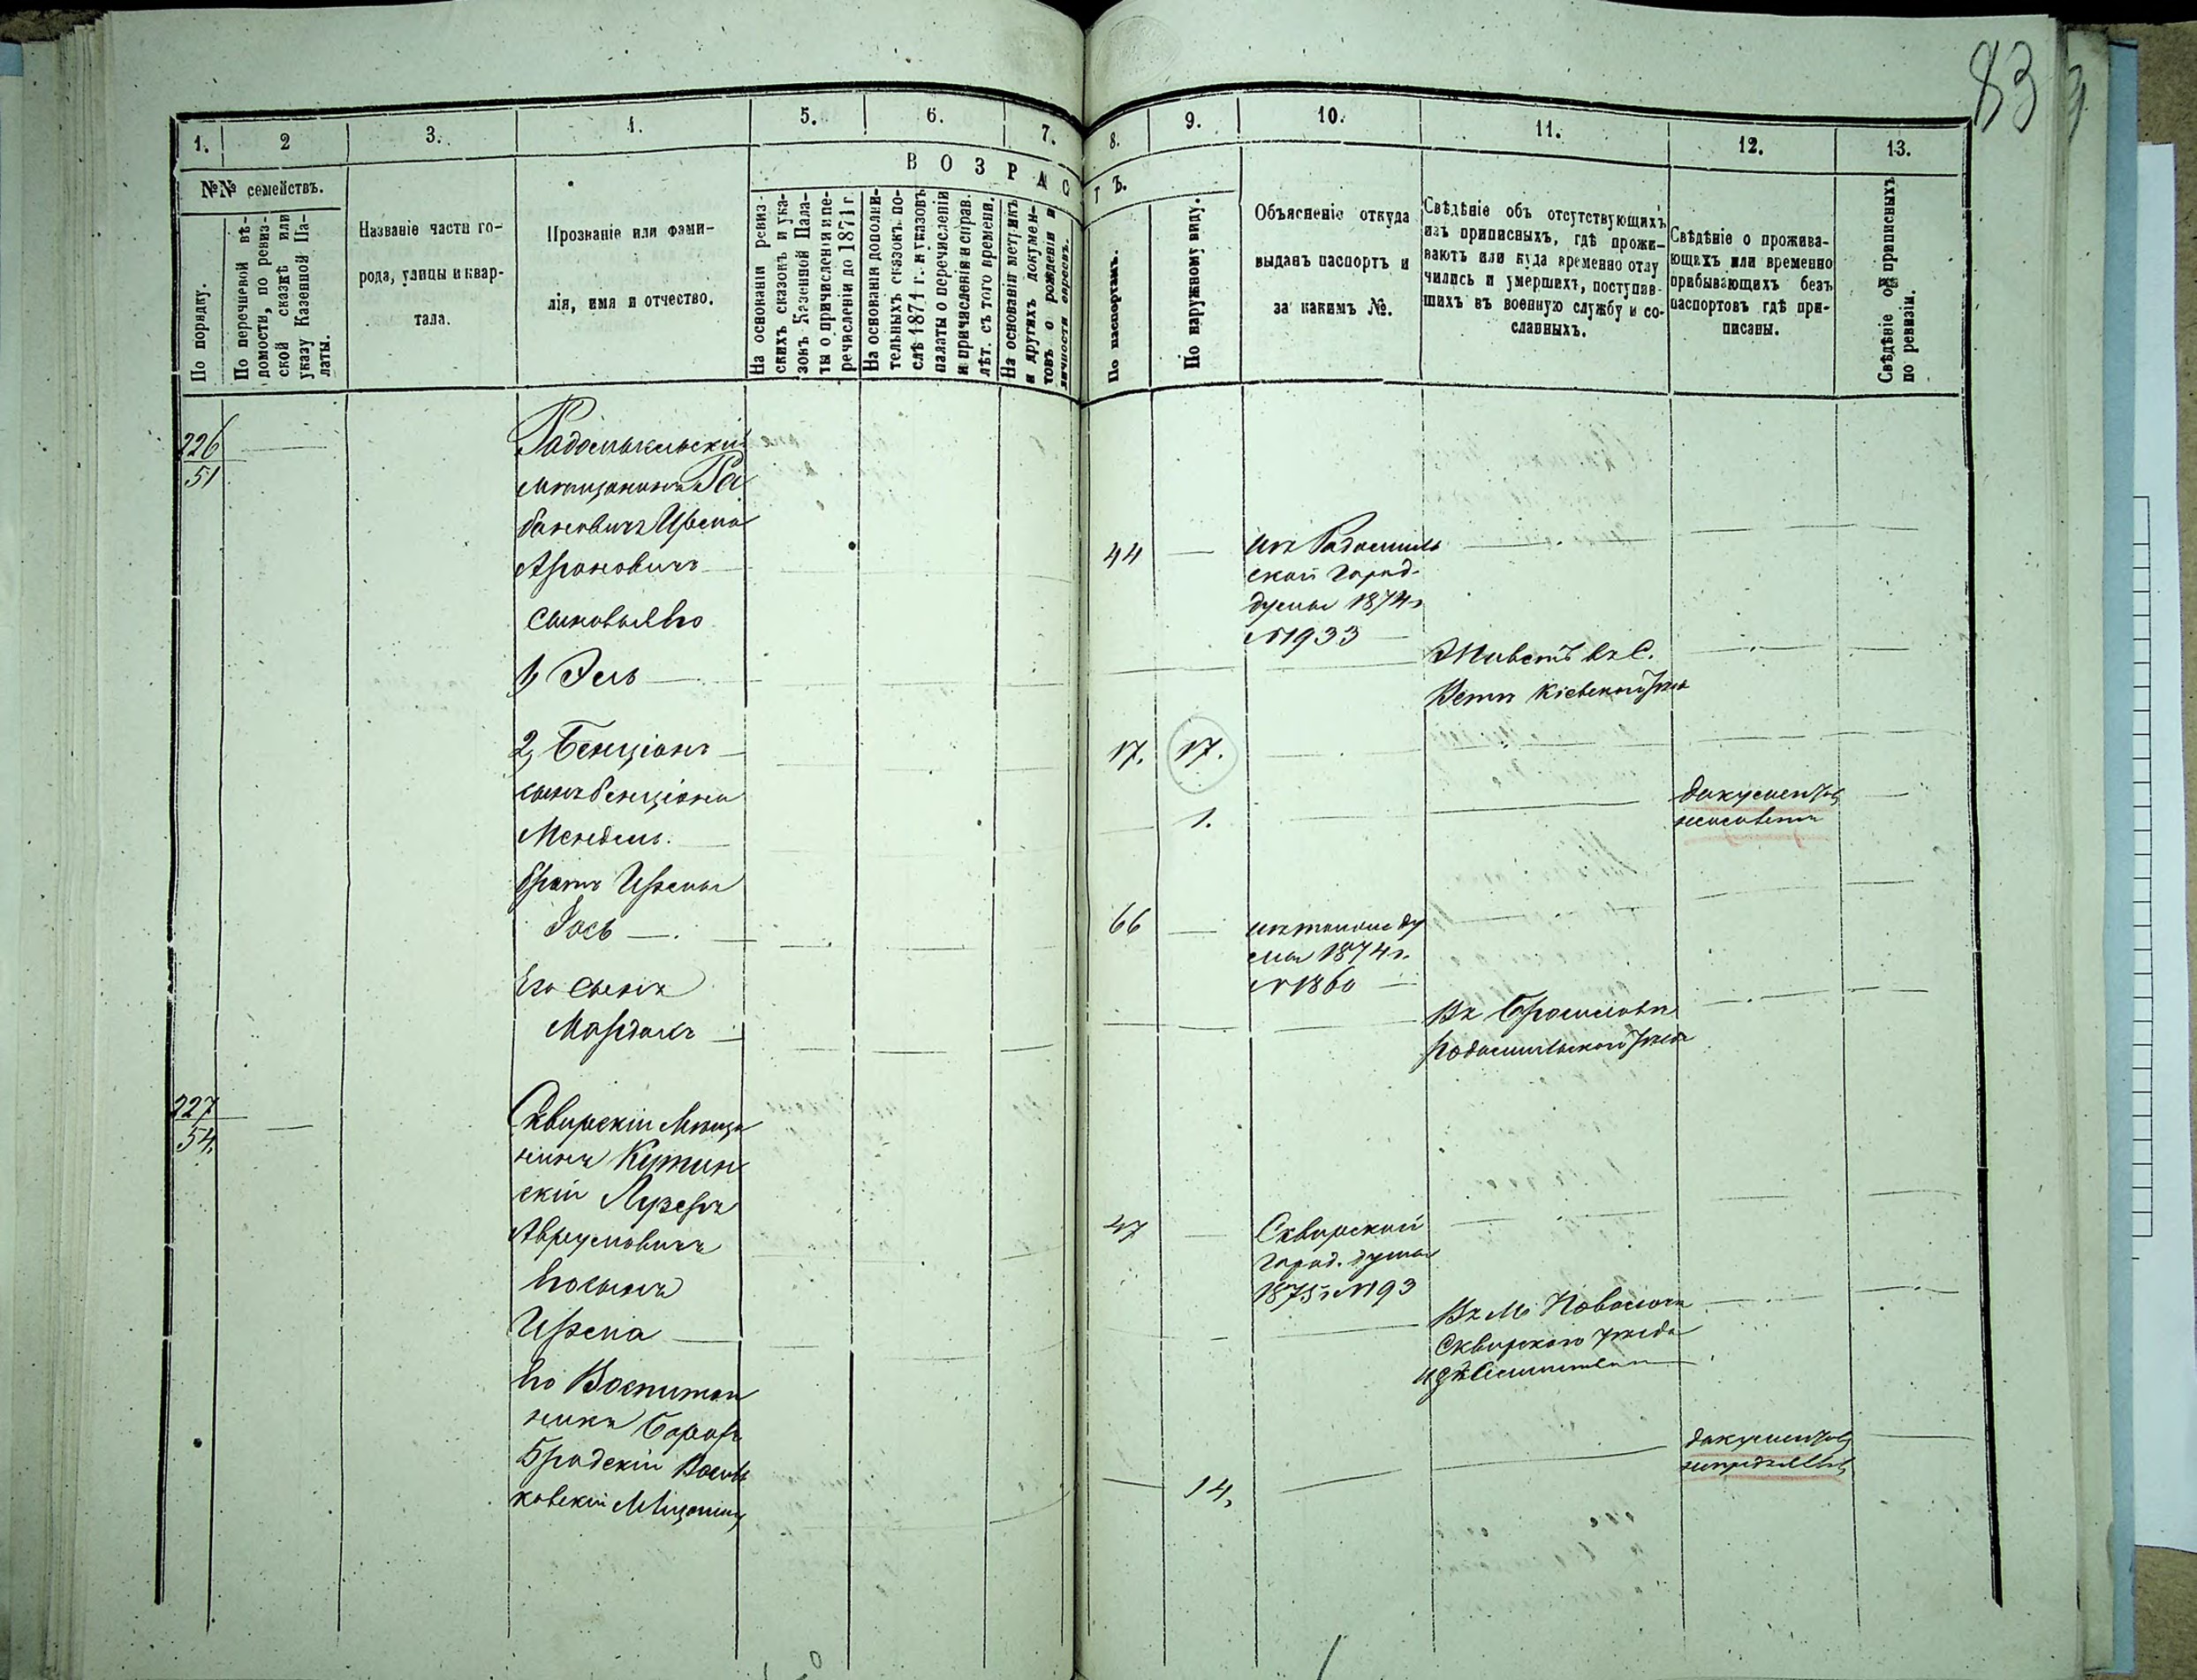 83
1.
2
3.
4.
5.
6.
7.
8.
9.
10.
11.
12.
13.
№№ семействъ.
По порядку.
По перечневой вѣ-
домости, по ревиз-
ской сказкѣ или
указу Казенной Па-
латы.
Названіе части го-
рода, улицы и квар-
тала.
Прозваніе или фами-
лія, имя и отчество.
ВОЗРАСТЪ.
На основаніи ревиз-
скихъ сказокъ и ука-
зонъ Казенной Пала-
ты о причисленіи и пе-
речисленіи до 1871 г.
На основаніи дополни-
тельныхъ сказокъ по-
слѣ 1871 г. и указовъ
палаты о перечисленіи
и причисленіи и справ.
лѣт. съ того времени.
На основаніи метрикъ
и другихъ докумен-
товъ о рожденіи и
личности евреевъ.
По паспортамъ.
По наружному виду.
Объясненіе откуда
выданъ паспортъ и
за какимъ №.
Свѣдѣніе объ отсутствующихъ
изъ приписныхъ, гдѣ прожи-
ваютъ или куда временно отлу
чились и умершихъ, поступив-
шихъ въ военную службу и со-
сланныхъ.
Свѣдѣніе о прожива-
ющихъ или временно
прибывающихъ безъ
паспортовъ гдѣ при-
писаны.
Свѣдѣніе о приписныхъ
по ревизіи.
226
51
Радомысльскій
мѣщанинъ Ра
бановичъ Ирсма
Ароновичъ
44
изъ Радомысль
ской Город.
думы 1874 г.
№1933
сыновья Его
1, Эль
Живетъ въ С.
Кіевскаго уѣз
2, Бенціонъ
17.
17.
сынъ Бенціона
Мендель.
1.
документовъ
братъ Ирсмы
Іось
66
изъ тойже ду
мы 1874 г.
№1860
Его сынъ
Мордко
Въ Брусиловѣ
Радомысльскаго уѣзда
227
54.
Сквирскій мѣща
нинъ Кутин
скій Лузеръ
Аврумовичъ
47
Сквирской
город. думы
1875 г. №193
Его сынъ
Ирсма
Въ М.
Сквирскаго уѣзда
Его Воспитан
никъ Борохъ
Бродскій Василь
ковскій Мѣщанинъ
14.
документовъ